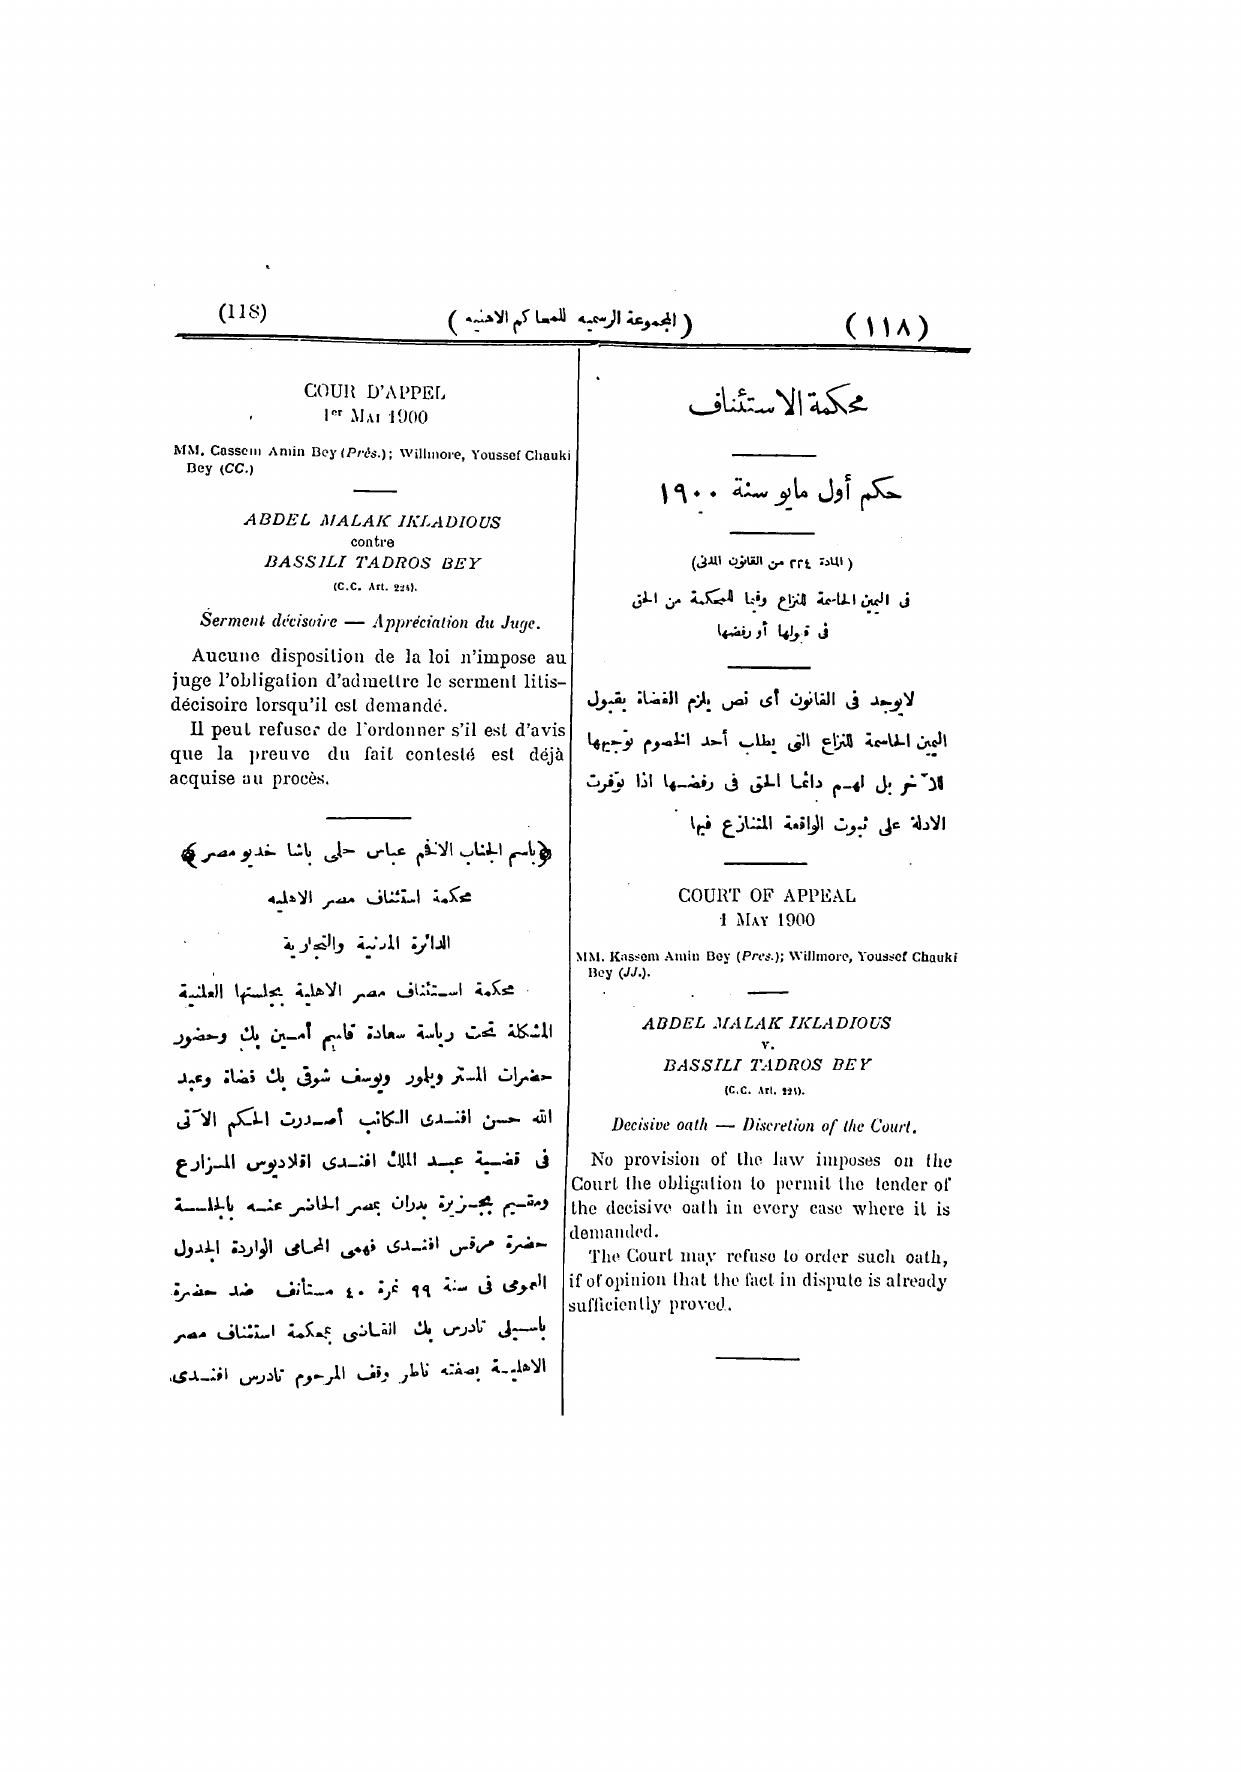 (118)
( المجموعة الرسمية للمحاكم الاهلية )
(١١٨)
محكمة الاستئناف
حكم أول مايو سنة ١٩٠٠
( المادة ٢٢٤ من القانون المدنى)
فى اليمين الحاسمة للنزاع وفيما للمحكمة من الحق
فى قبولها أو رفضها
لايوجد فى القانون أى نص يلزم القضاة بقبول
اليمين الحاسمة للنزاع التى يطلب أحد الخصوم توجيهها
للآخر بل لهم دائما الحق فى رفضها اذا توفرت
الادلة على ثبوت الواقعة المتنازع فيها
COURT OF APPEAL
1 MAY 1900
MM. Kassem Amin Bey (Pres.); Willmore, Youssef Chauki
Bey (JJ.).
ABDEL MALAK IKLADIOUS
v.
BASSILI TADROS BEY
(C.C. Art. 224).
Decisive oath — Discretion of the Court.
No provision of the law imposes on the
Court the obligation to permit the tender of
the decisive oath in every case where it is
demanded.
The Court may refuse to order such oath,
if of opinion that the fact in dispute is already
sufficiently proved.
COUR D'APPEL
1er MAI 1900
MM. Cassem Amin Bey (Prés.); Willmore, Youssef Chauki
Bey (CC.)
ABDEL MALAK IKLADIOUS
contre
BASSILI TADROS BEY
(C.C. Art. 224).
Serment décisoire — Appréciation du Juge.
Aucune disposition de la loi n'impose au
juge l'obligation d'admettre le serment litis-
décisoire lorsqu'il est demandé.
Il peut refuser de l'ordonner s'il est d'avis
que la preuve du fait contesté est déjà
acquise au procès.
﴿باسم الجناب الافخم عباس حلمى باشا خديو مصر﴾
محكمة استئناف مصر الاهليه
الدائرة المدنية والتجارية
محكمة استئناف مصر الاهلية بجلستها العلنية
المشكلة تحت رياسة سعادة قاسم أمين بك وحضور
حضرات المستر ويلمور ويوسف شوقى بك قضاة وعبد
الله حسن افندى الكاتب أصدرت الحكم الآتى
فى قضية عبد الملك افندى اقلاديوس المزارع
ومقيم بجزيرة بدران بمصر الحاضر عنه بالجلسة
حضرة مرقس افندى فهمى المحامى الواردة الجدول
العمومى فى سنة ٩٩ نمرة ٤٠ مستأنف ضد حضرة
باسيلى تادرس بك القاضى بمحكمة استئناف مصر
الاهلية بصفته ناظر وقف المرحوم تادرس افندى